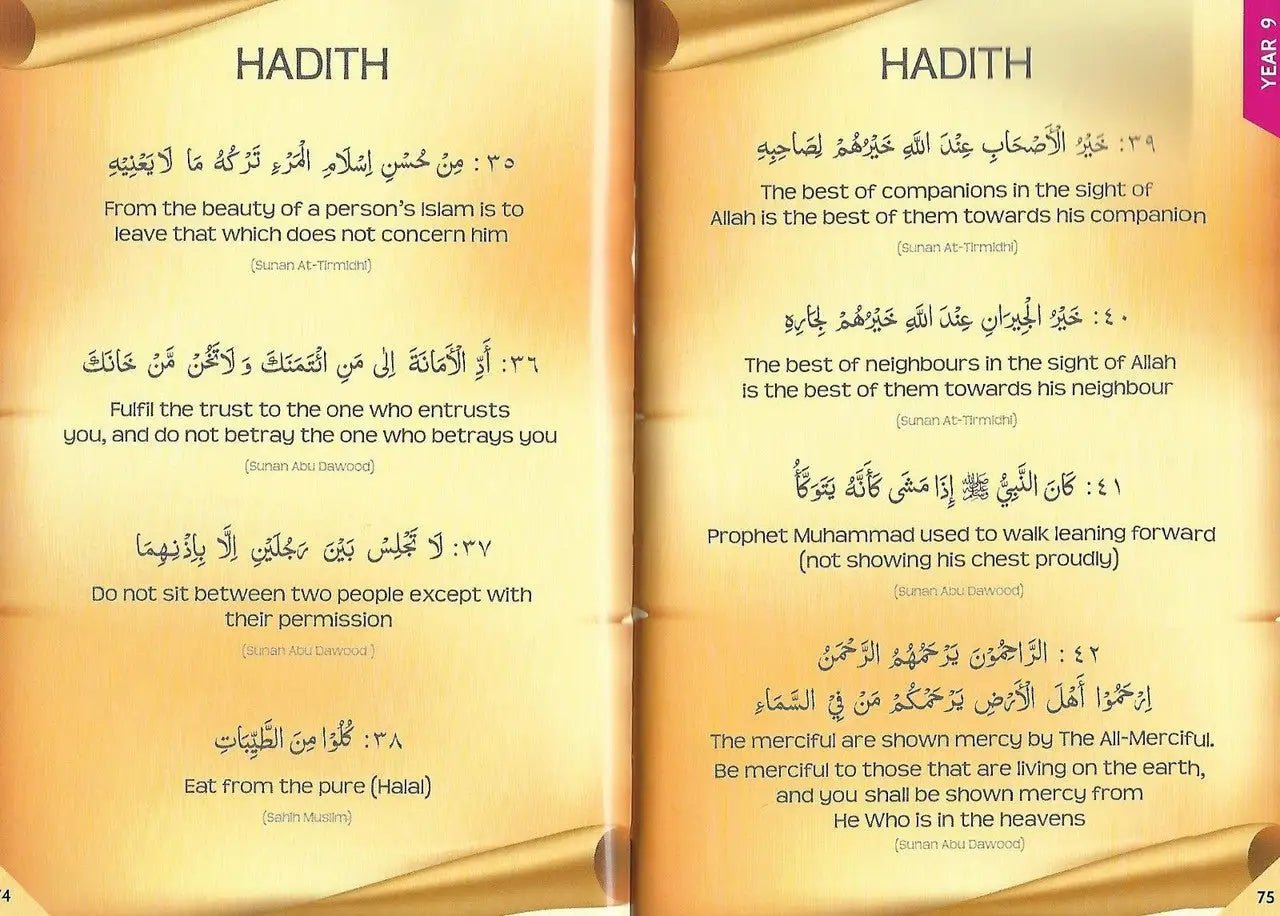 HADITH
٣٥: مِنْ حُسْنِ إِسْلَامِ الْمَرْءِ تَرْكُهُ مَا لَا يَعْنِيْهِ
From the beauty of a person's Islam is to
leave that which does not concern him
(Sunan At-Tirmidhi)
٣٦: أَدِّ الْأَمَانَةَ إِلٰى مَنِ ائْتَمَنَكَ وَ لَا تَخُنْ مَّنْ خَانَكَ
Fulfil the trust to the one who entrusts
you, and do not betray the one who betrays you
(Sunan Abu Dawood)
٣٧: لَا تَجْلِسْ بَيْنَ رَجُلَيْنِ إِلَّا بِإِذْنِهِمَا
Do not sit between two people except with
their permission
(Sunan Abu Dawood )
٣٨: كُلُوْا مِنَ الطَّيِّبَاتِ
Eat from the pure (Halal)
(Sahih Muslim)
HADITH
YEAR 9
٣٩: خَيْرُ الْأَصْحَابِ عِنْدَ اللّٰهِ خَيْرُهُمْ لِصَاحِبِهِ
The best of companions in the sight of
Allah is the best of them towards his companion
(Sunan At-Tirmidhi)
٤٠: خَيْرُ الْجِيرَانِ عِنْدَ اللّٰهِ خَيْرُهُمْ لِجَارِهِ
The best of neighbours in the sight of Allah
is the best of them towards his neighbour
(Sunan At-Tirmidhi)
٤١: كَانَ النَّبِيُّ ﷺ إِذَا مَشَى كَأَنَّهُ يَتَوَكَّأُ
Prophet Muhammad used to walk leaning forward
(not showing his chest proudly)
(Sunan Abu Dawood)
٤٢: الرَّاحِمُوْنَ يَرْحَمُهُمُ الرَّحْمَنُ
اِرْحَمُوْا أَهْلَ الْأَرْضِ يَرْحَمْكُمْ مَنْ فِي السَّمَاءِ
The merciful are shown mercy by The All-Merciful.
Be merciful to those that are living on the earth,
and you shall be shown mercy from
He Who is in the heavens
(Sunan Abu Dawood)
75